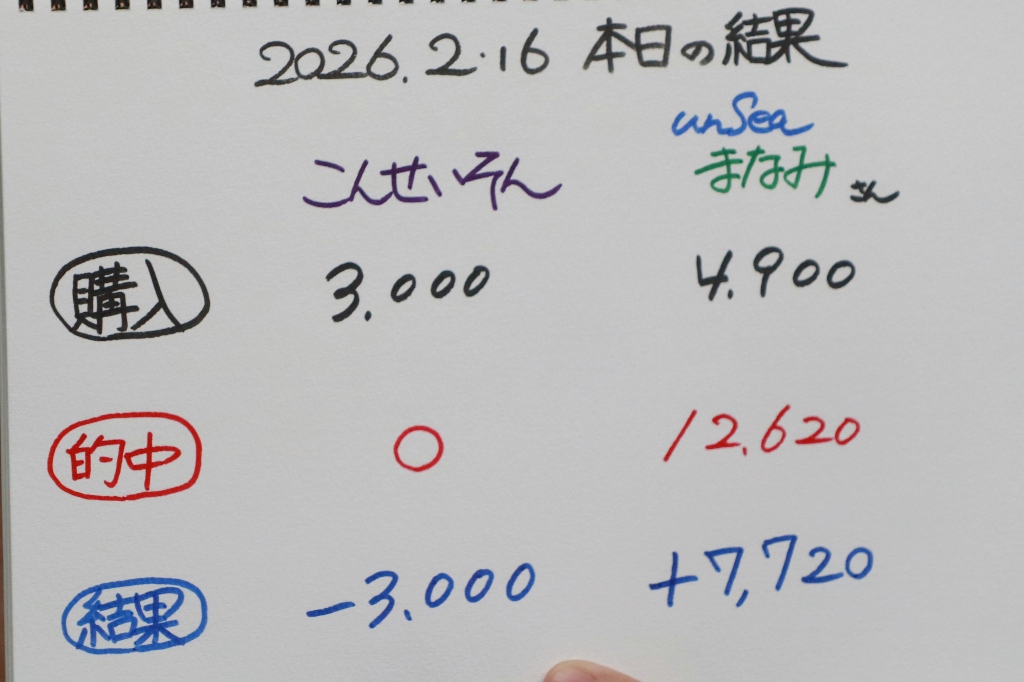 2026.2.16 本日の結果
unSea
こんせいそん まなみ さん
購入 3.000 4.900
的中 0 12.620
結果 -3.000 +7,720